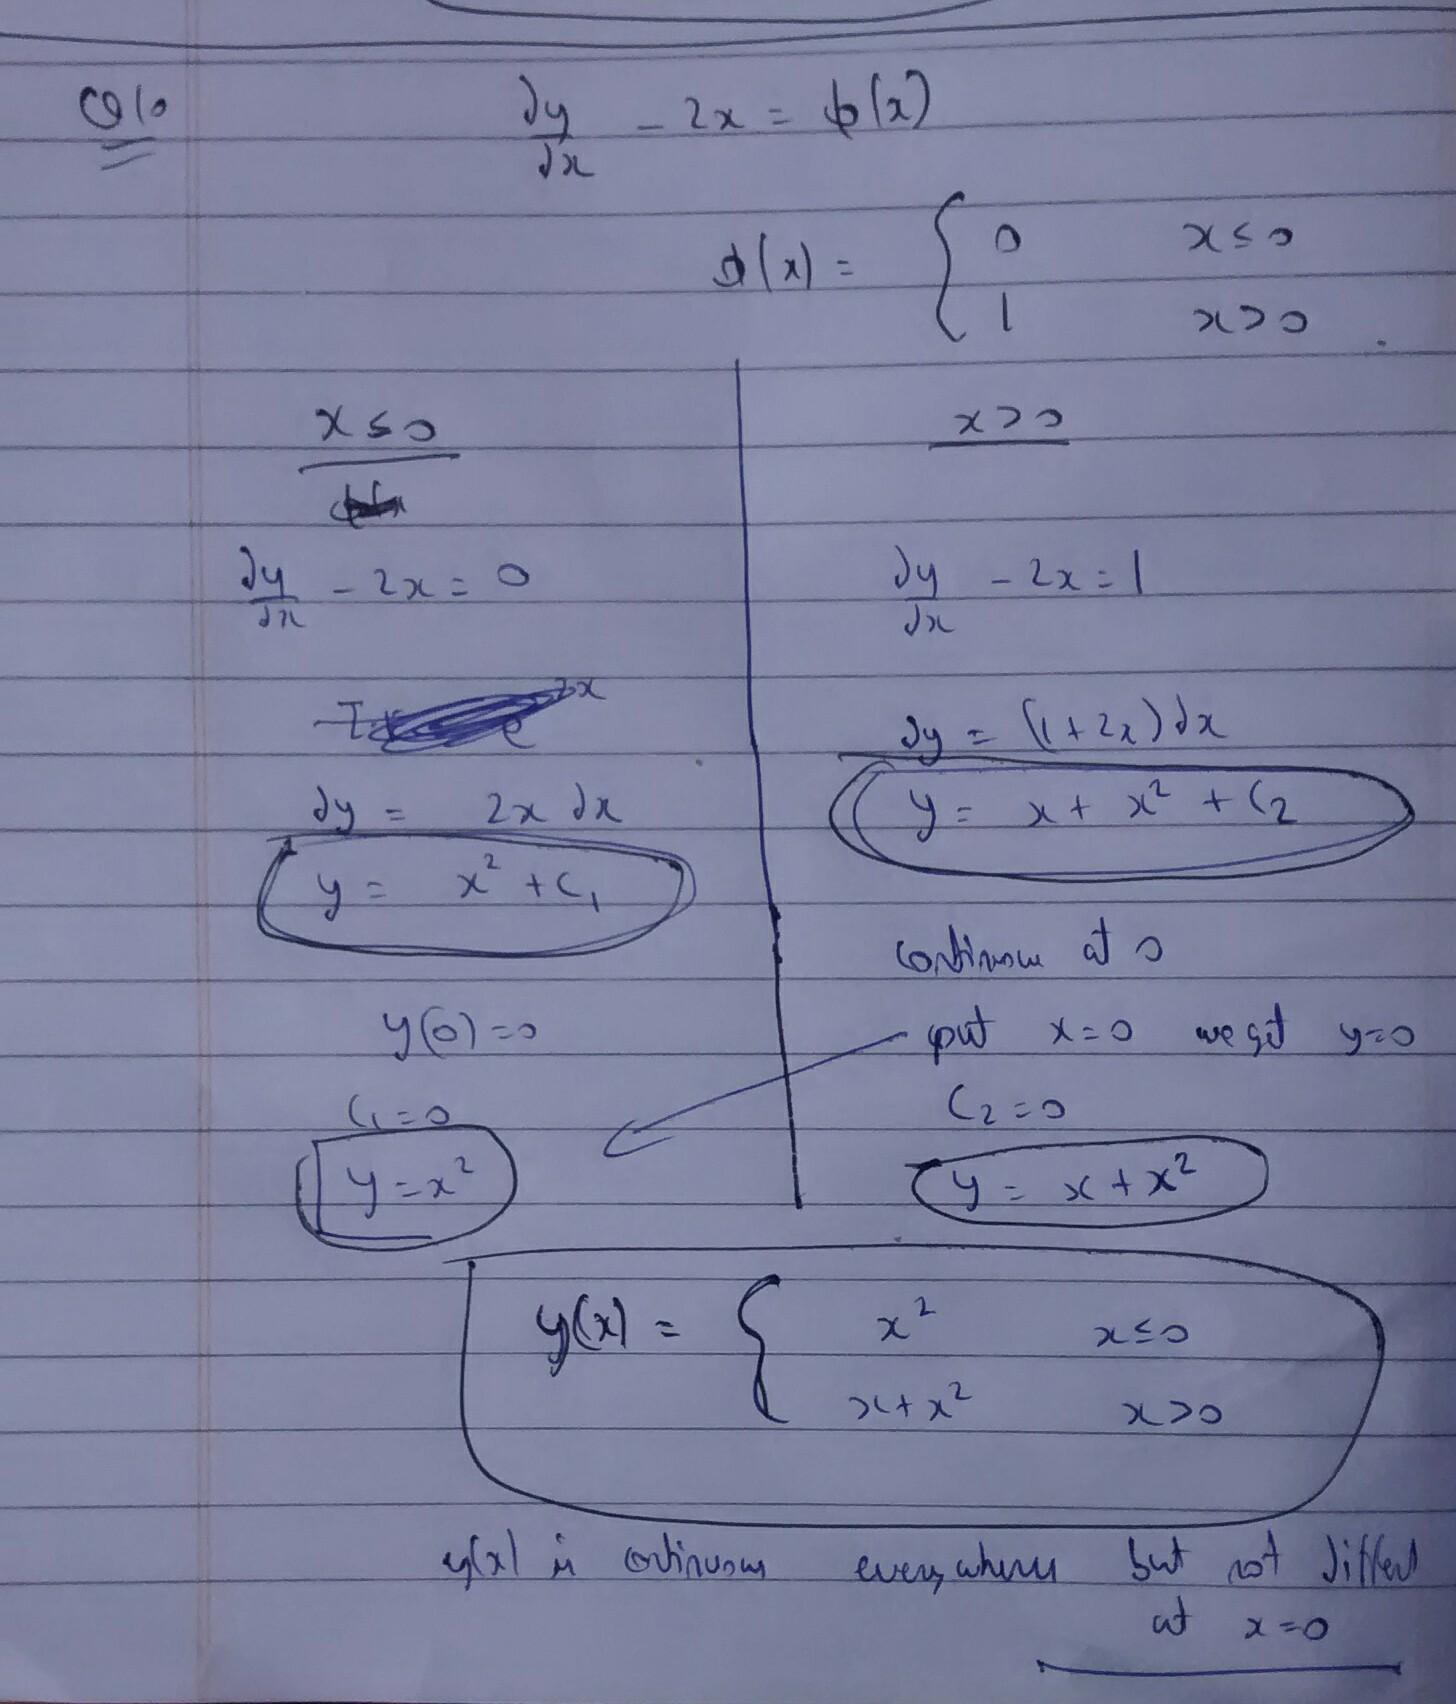 Q10 dy/dx - 2x = ϕ(x)
ϕ(x) = { 0 x ≤ 0
1 x > 0
x ≤ 0
dy/dx - 2x = 0
dy = 2x dx
y = x² + C₁
y(0) = 0
C₁ = 0
y = x²
x > 0
dy/dx - 2x = 1
dy = (1 + 2x) dx
y = x + x² + C₂
continuous at 0
put x = 0 we get y = 0
C₂ = 0
y = x + x²
y(x) = { x² x ≤ 0
x + x² x > 0
y(x) is continuous everywhere but not
at x = 0